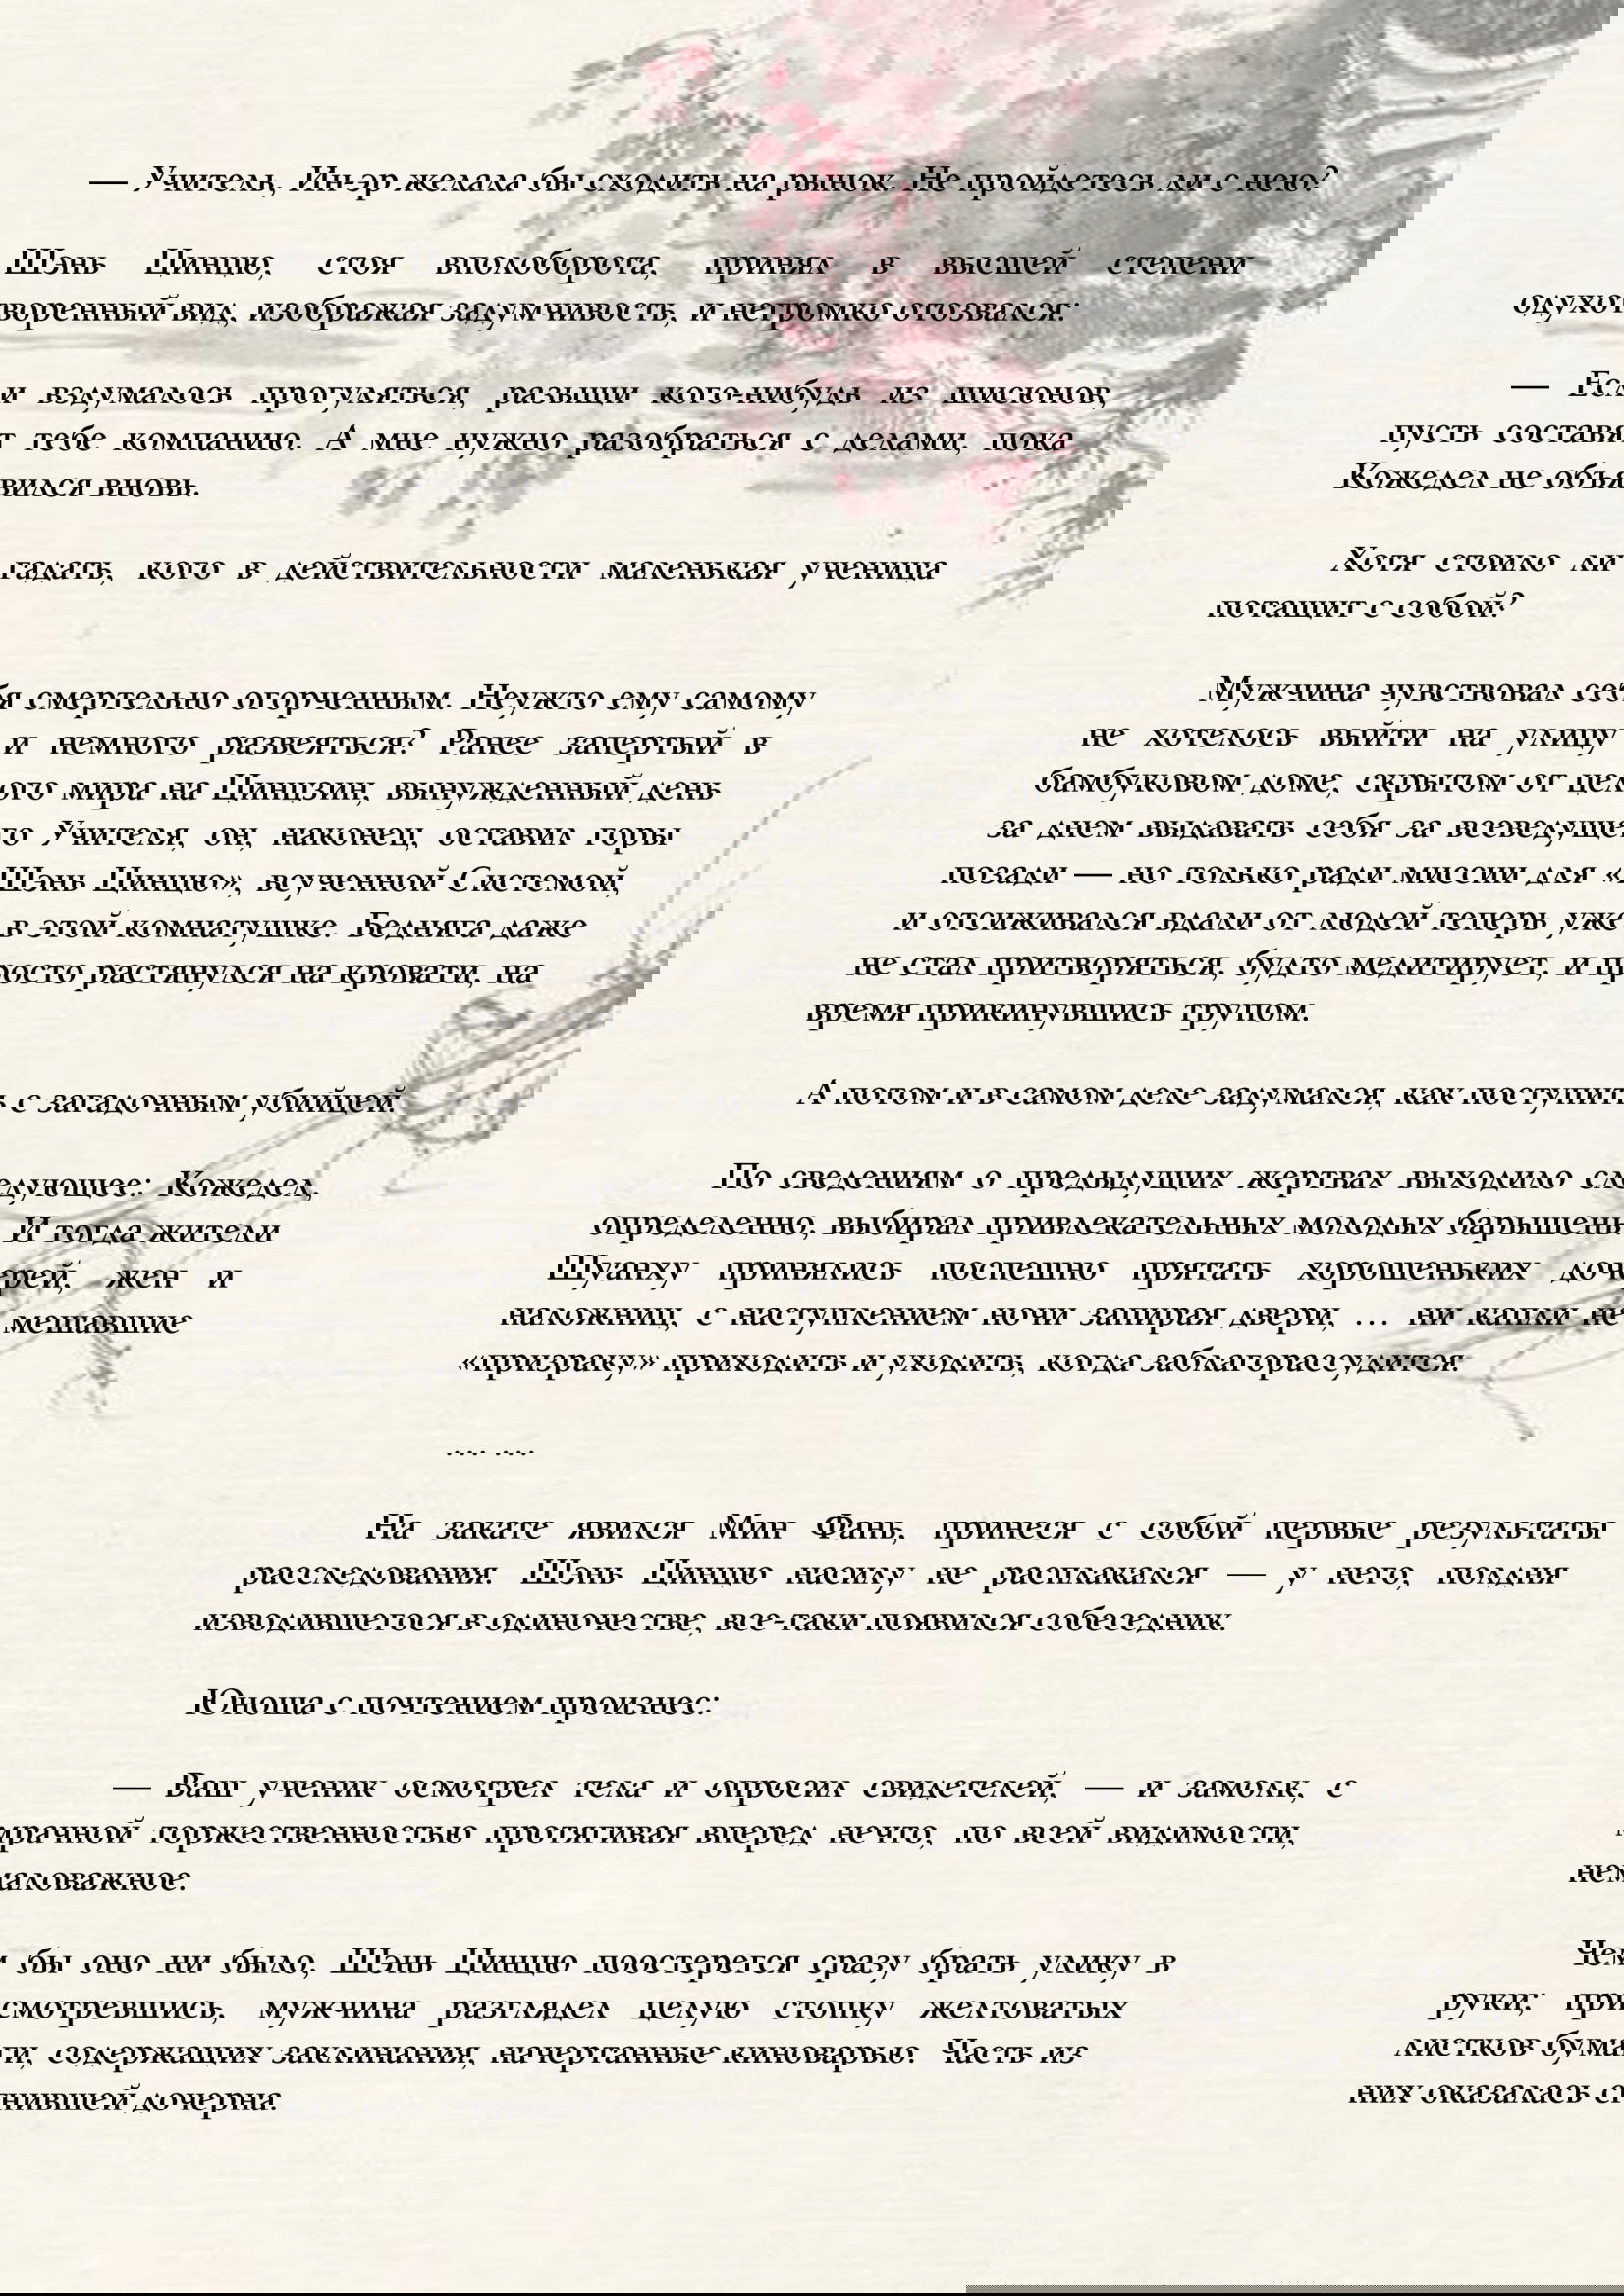 — Учитель, Ин-эр желала бы сходить на рынок. Не пройдетесь ли с нею?
Шэнь Цинцю, стоя вполоборота, принял в высшей степени
одухотворенный вид, изображая задумчивость, и негромко отозвался:
— Если вздумалось прогуляться, разыщи кого-нибудь из шисюнов,
пусть составят тебе компанию. А мне нужно разобраться с делами, пока
Кожедел не объявился вновь.
Хотя стоило ли гадать, кого в действительности маленькая ученица
потащит с собой?
Мужчина чувствовал себя смертельно огорченным. Неужто ему самому
не хотелось выйти на улицу и немного развеяться? Ранее запертый в
бамбуковом доме, скрытом от целого мира на Цинцзин, вынужденный день
за днем выдавать себя за всеведущего Учителя, он, наконец, оставил горы
позади — но только ради миссии для «Шэнь Цинцю», всученной Системой,
и отсиживался вдали от людей теперь уже в этой комнатушке. Бедняга даже
не стал притворяться, будто медитирует, и просто растянулся на кровати, на
время прикинувшись трупом.
А потом и в самом деле задумался, как поступить с загадочным убийцей.
По сведениям о предыдущих жертвах выходило следующее: Кожедел,
определенно, выбирал привлекательных молодых барышень. И тогда жители
Шуанху принялись поспешно прятать хорошеньких дочерей, жен и
наложниц, с наступлением ночи запирая двери, … ни капли не мешавшие
«призраку» приходить и уходить, когда заблагорассудится.
…… ……
На закате явился Мин Фань, принеся с собой первые результаты
расследования. Шэнь Цинцю насилу не расплакался — у него, полдня
изводившегося в одиночестве, все-таки появился собеседник.
Юноша с почтением произнес:
— Ваш ученик осмотрел тела и опросил свидетелей, — и замолк, с
странной торжественностью протягивая вперед нечто, по всей видимости,
немаловажное.
Чем бы оно ни было, Шэнь Цинцю поостерегся сразу брать улику в
руки; присмотревшись, мужчина разглядел целую стопку желтоватых
листков бумаги, содержащих заклинания, начертанные киноварью. Часть из
них оказалась сгнившей дочерна.